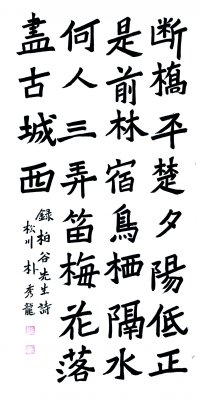 断橋平楚夕陽低正
是前林宿鳥栖隔水
何人三弄笛梅花落
盡古城西
録柏谷先生詩
松川 朴秀龍